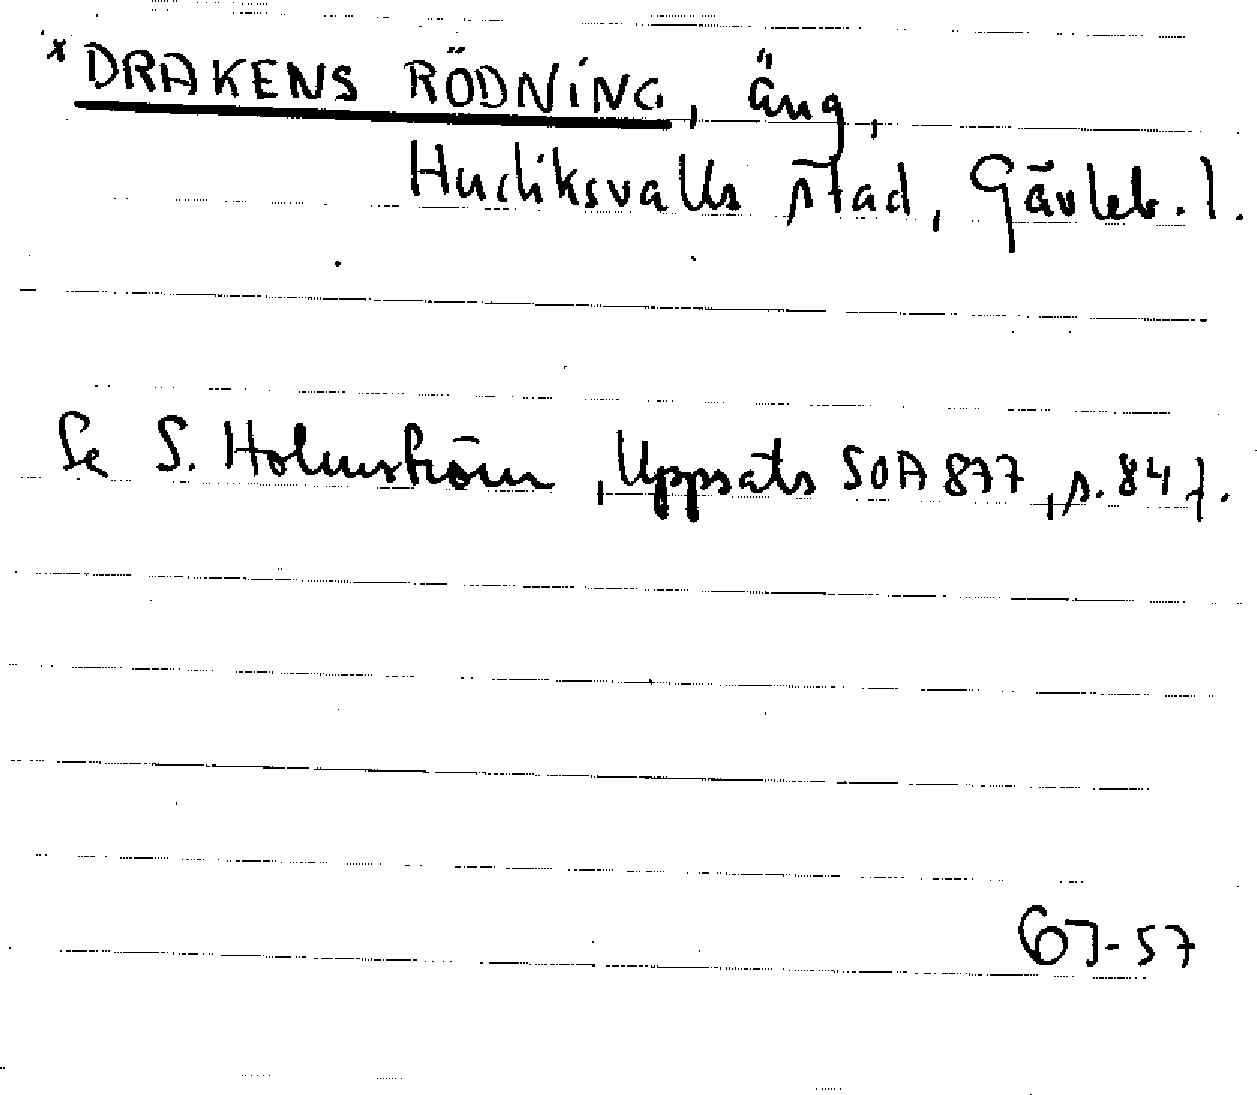 * DRAKENS RÖDNING, äng,
Hudiksvalls stad, Gävleb. l.
Se S. Holmström, Uppsats SOA 877, s. 84 f.
67-57